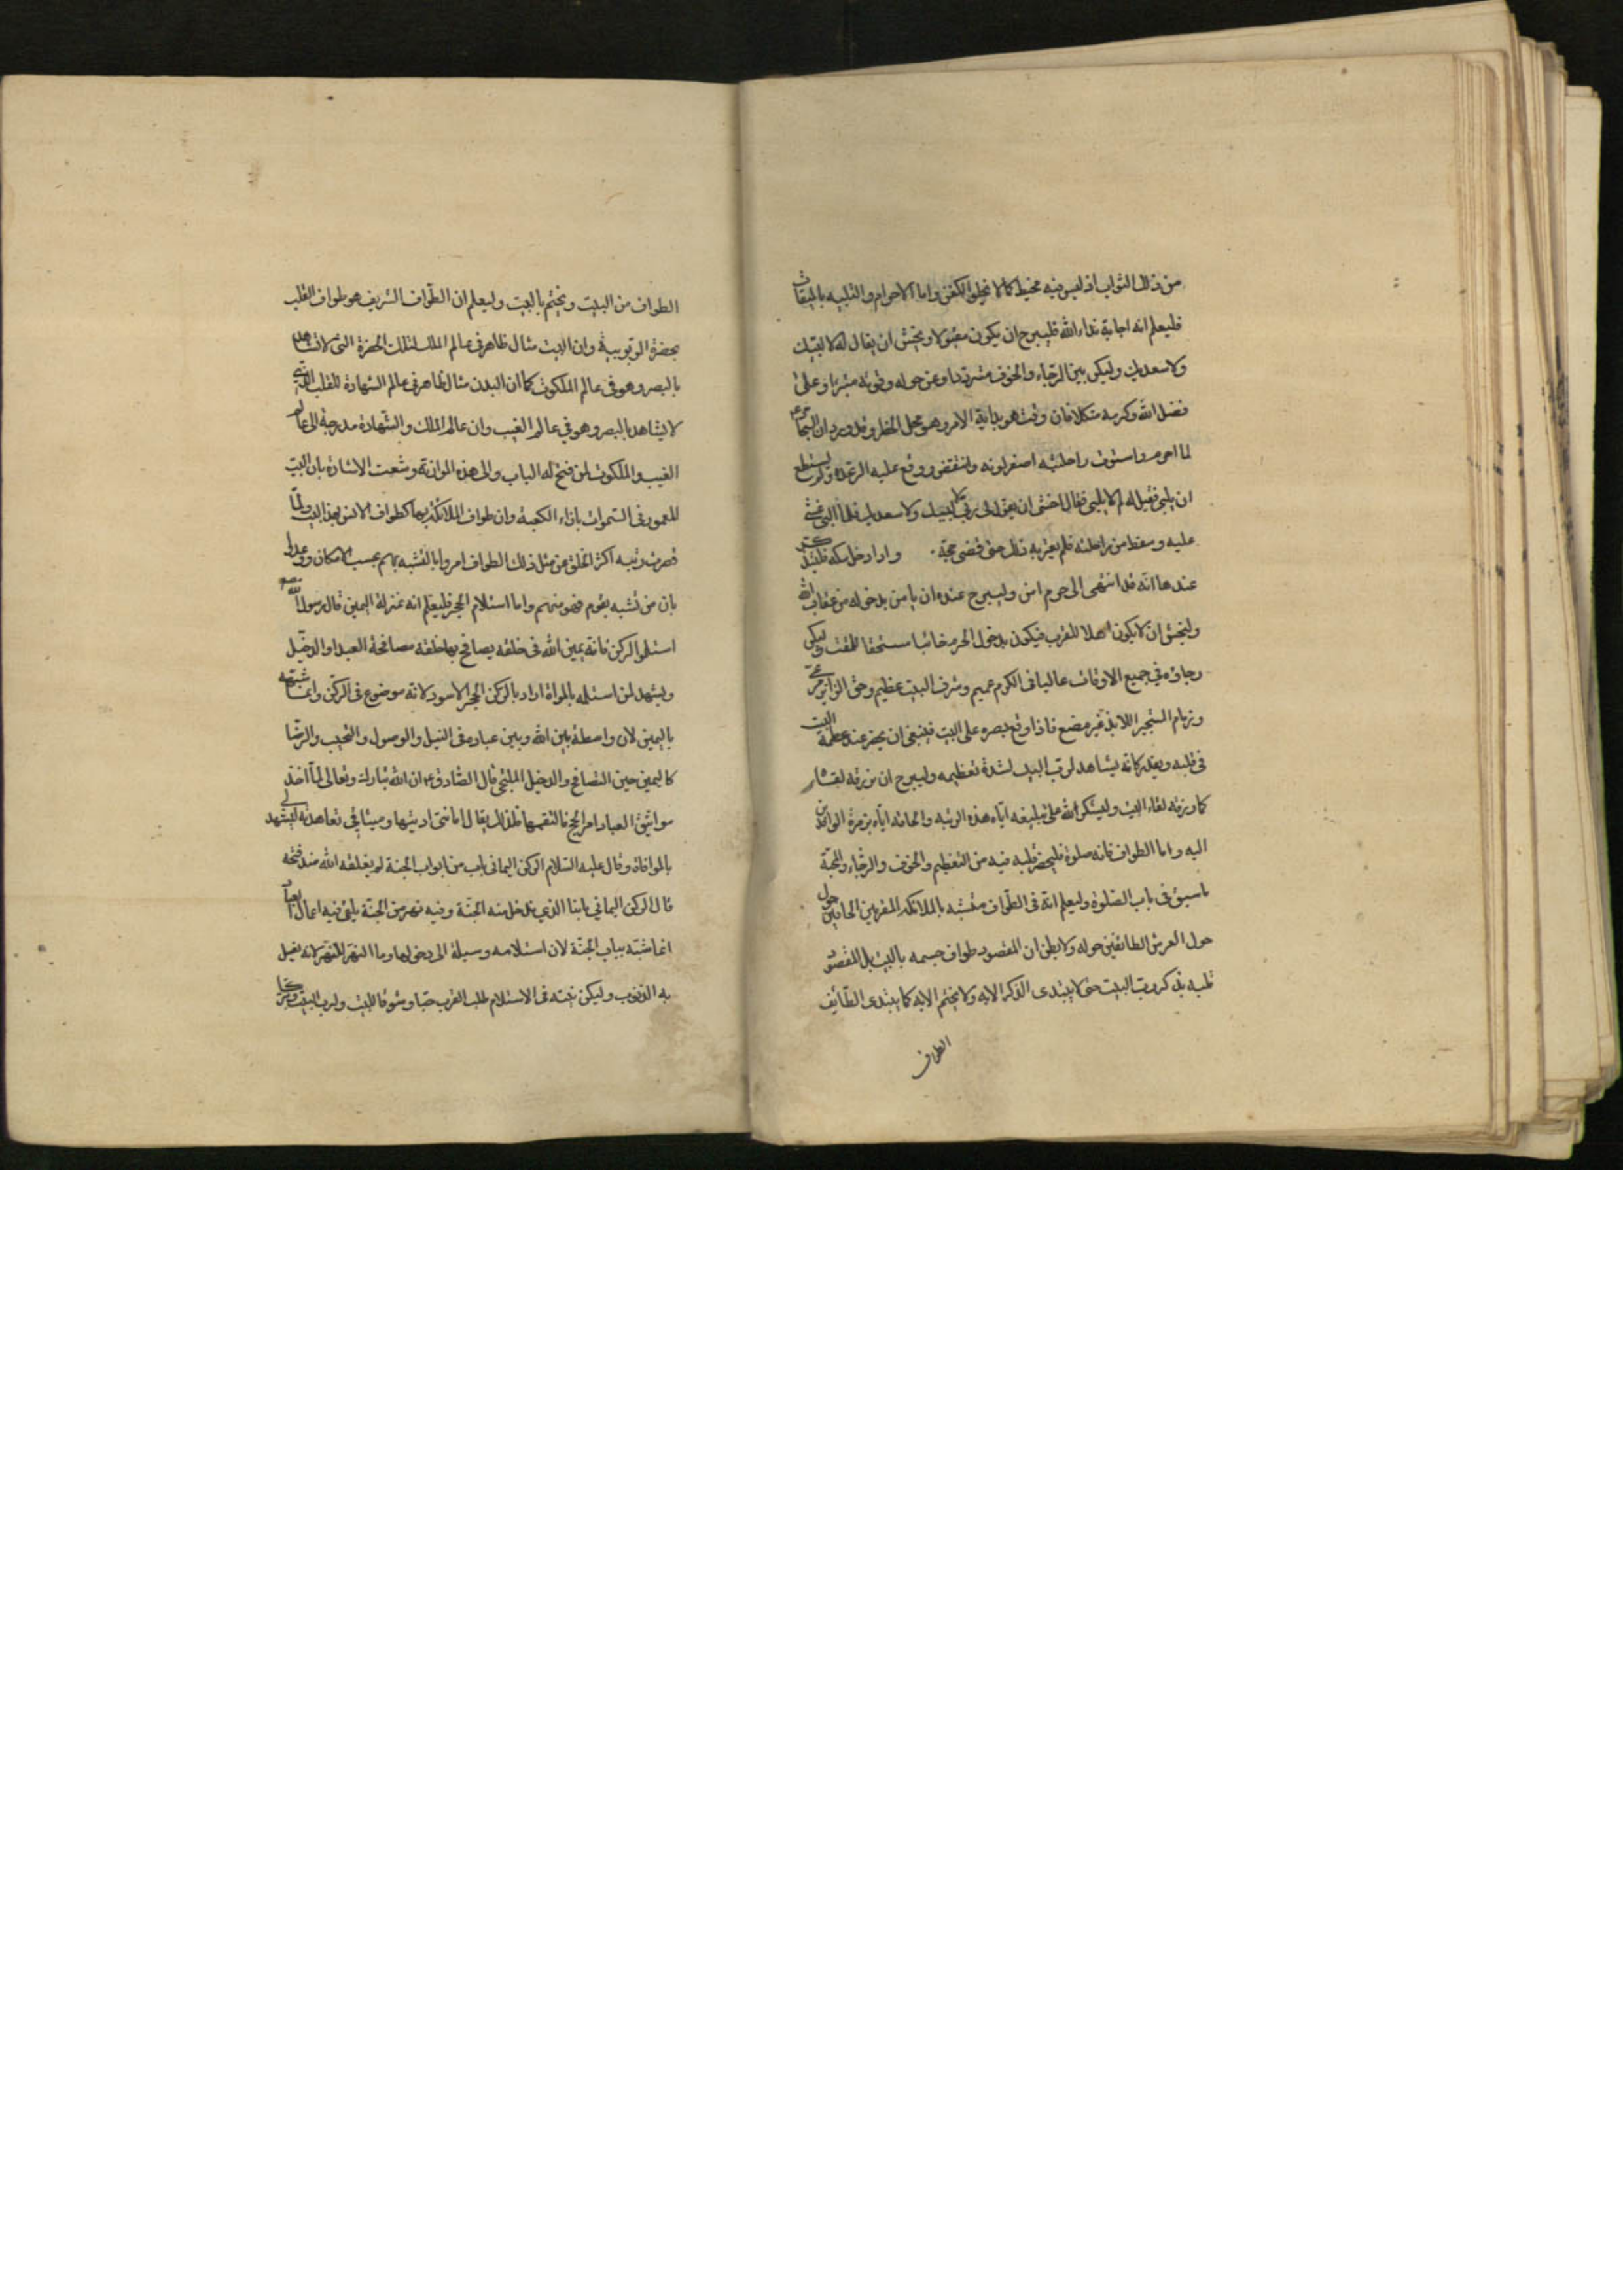 من ذلك الثواب اذ ليس فيه مخيط كما لا مخيط الكفن واما الاحرام والتلبيه بالميقات
فليعلم انه اجابة نداء الله فليرج ان يكون مقبولا وليخش ان يقال له لا لبيك
ولا سعديك وليكن بين الرجاء والخوف مترددا وعن حوله وقوته متبريا وعلى
فضل الله وكرمه متكلا فان وقت هو بداية الامر وهو محل الخطر وقد ورد ان السجاد ع
لما احرم واستوت راحلته اصفر لونه وانتفض ووقع عليه الرعدة ولم يستطع
ان يلبي فقيل له الا تلبي فقال اخشى ان يقول لي ربي لا لبيك ولا سعديك فلما لبى غشي
عليه وسقط من راحلته فلم يعتريه ذلك حتى قضى حجه واذا دخل مكه فليتذكر
عندها انه قد انتهى الى حرم امن وليرج عنده ان يامن بدخوله من عقاب الله
وليخش ان لا يكون اهلا للقرب فيكون بدخول الحرم خائبا مستحقا للمقت وليكن
رجاؤه في جميع الاوقات غالبا فالكرم عميم وشرف البيت عظيم وحق الزاير مرعي
وزمام المستجير اللائذ غير مضيع فاذا وقع بصره على البيت فينبغي ان يحضر عنده عظمة البيت
في قلبه ويقدر كانه يشاهد لرب البيت لشدة تعظيمه وليرج ان يرزقه لقاءه
كما رزقه لقاء البيت وليشكر الله على تبليغه اياه هذه الرتبه والحاقه اياه بزمرة الوافدين
اليه واما الطواف فانه صلوة فليحضر قلبه فيه من التعظيم والخوف والرجاء والمحبة
ما سبق في باب الصلوة وليعلم انه في الطواف متشبه بالملائكه المقربين الحافين حول
حول العرش الطائفين حوله ولا يظن ان المقصود طواف جسمه بالبيت بل المقصود
قلبه بذكر رب البيت حتى لا يبتدى الذكر الا به ولا يختم الا به كما يبتدى الطائف
الطواف
الطواف من البيت ويختم بالبيت وليعلم ان الطواف الشريف هو طواف القلب
بحضرة الربوبية وان البيت مثال ظاهر في عالم الملك لتلك الحضرة التي لا تشاهد
بالبصر وهو في عالم الملكوت كما ان البدن مثال ظاهر في عالم الشهادة للقلب الذي
لا يشاهد بالبصر وهو في عالم الغيب وان عالم الملك والشهادة مدرجة الى عالم
الغيب والملكوت لمن فتح له الباب والى هذه الموازنة وقعت الاشارة بان البيت
المعمور في السموات بازاء الكعبة وان طواف الملائكة بها كطواف الانس بهذا البيت ولما
قصرت رتبه اكثر الخلق عن مثل ذلك الطواف امروا بالتشبه بهم بحسب الامكان ووعدوا
بان من تشبه بقوم فهو منهم واما استلام الحجر فليعلم انه بمنزلة اليمين قال رسول الله
استلموا الركن فانه يمين الله في خلقه يصافح بها خلقه مصافحة العبد او الدخيل
ويشهد لمن استلمه بالموافاة اراد بالركن الحجر الاسود لانه موضوع في الركن وانما شبهه
باليمين لان واسطة بين الله وبين عباده في النيل والوصول والتحبب والرضا
كاليمين حين التصافح والدخيل الملتجي قال الصادق ع ان الله تبارك وتعالى لما اخذ
مواثيق العباد امر الحجر فالتقمها فلذلك يقال امانتي اديتها وميثاقي تعاهدته لتشهد لي
بالموافاة وقال عليه السلام الركن اليماني باب من ابواب الجنة لم يغلقه الله منذ فتحه
قال الركن اليماني بابنا الذي ندخل منه الجنة وفيه نهر من الجنة يلقى فيه اعمال العباد
انما شبه بباب الجنة لان استلامه وسيلة الى دخولها وما النهر لانه يغسل
به الذنوب وليكن نيته في الاستلام طلب القرب حبا وشوقا للبيت ولرب البيت